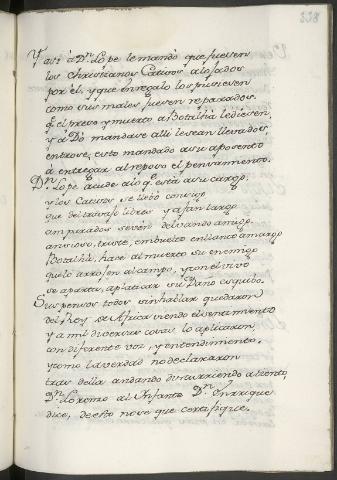 338
Y assi à Dⁿ. Lope le mandò que fuesen
los Christianos Cautivos alojados
por èl, y que en regalo los pusiesen
como sus males fuesen reparados.
q.^e el preso y muerto a Botalhà lediesen,
y à Dò mandase alli lesean llevados,
entrose, esto mandado a su aposento
à entregar al reposo el pensamiento.
Dⁿ. Lope acude alo q.^e està asu cargo,
y los Cautivos se llebò consigo
que del travajo libres y afan largo
amparados seven del vando amigo.
ansioso, triste, embuelto en llanto amargo
Botalhà, hace al muerto su enemigo
quelo arrojen al campo, y con el vivo
se aparta, aplaticar su Daño esquibo.
Suspensos todos sin hablar quedaron
del Rey de Africa viendo el sentimiento
y a mil diversas cosas lo aplicaron,
con diferente voz, y entendimiento.
y como la verdad no declararon
tras della andando discurriendo a tiento,
Dⁿ. Lorenzo al Infante Dⁿ. Enrrique
dice, de esto no se que certifique.